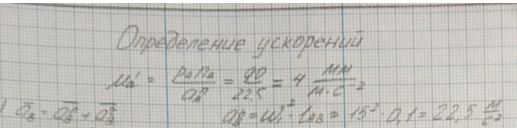 Определение ускорений
μa' = PaПa / aB = 90 / 22,5 = 4 мм / м·с⁻²
āB = āBⁿ + āBᵗ aB = ω₁² · lAB = 15² · 0,1 = 22,5 м/с²